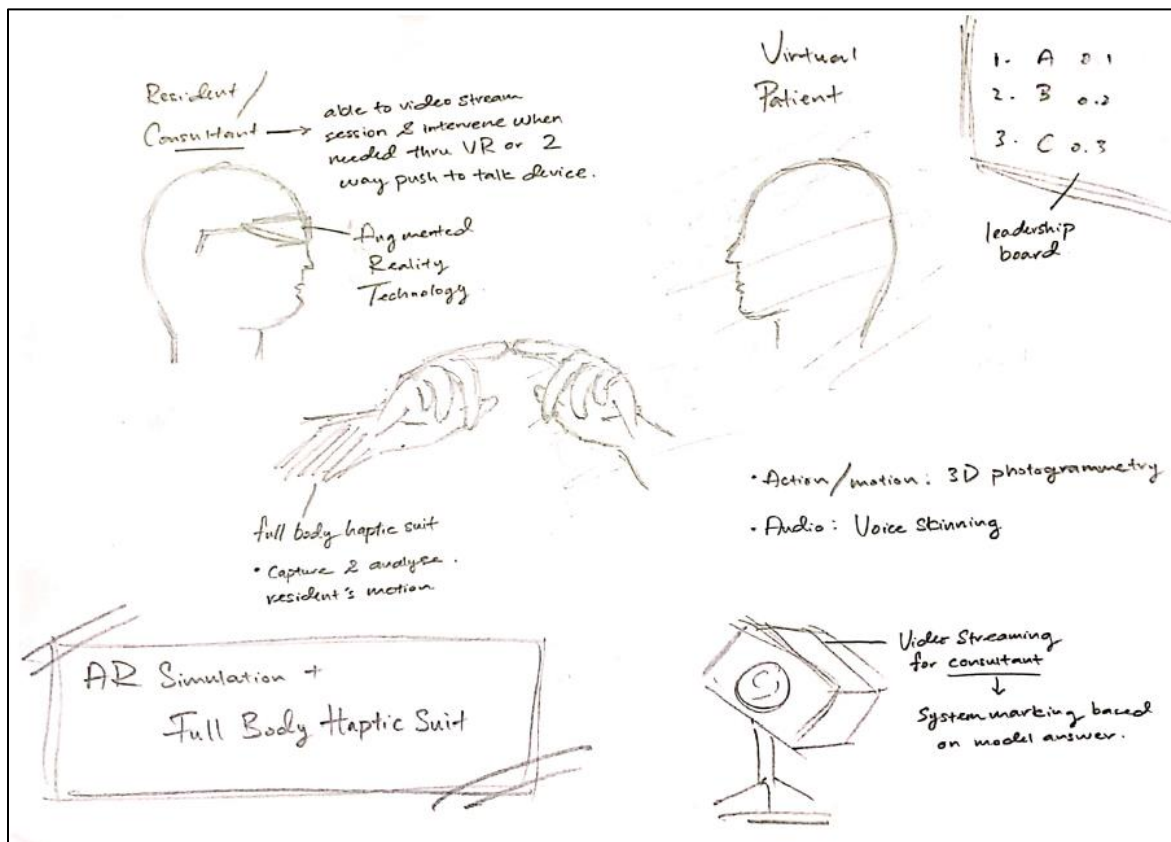 Resident/
Consultant
able to video stream
session & intervene when
needed thru VR or 2
way push to talk device.
Augmented
Reality
Technology.
Virtual
Patient
1. A 0.1
2. B 0.2
3. C 0.3
leadership
board
full body haptic suit
• Capture & analyse.
resident's motion
• Action/motion: 3D photogrammetry
• Audio: Voice skinning
AR Simulation +
Full Body Haptic Suit
Video Streaming
for consultant
System marking based
on model answer.